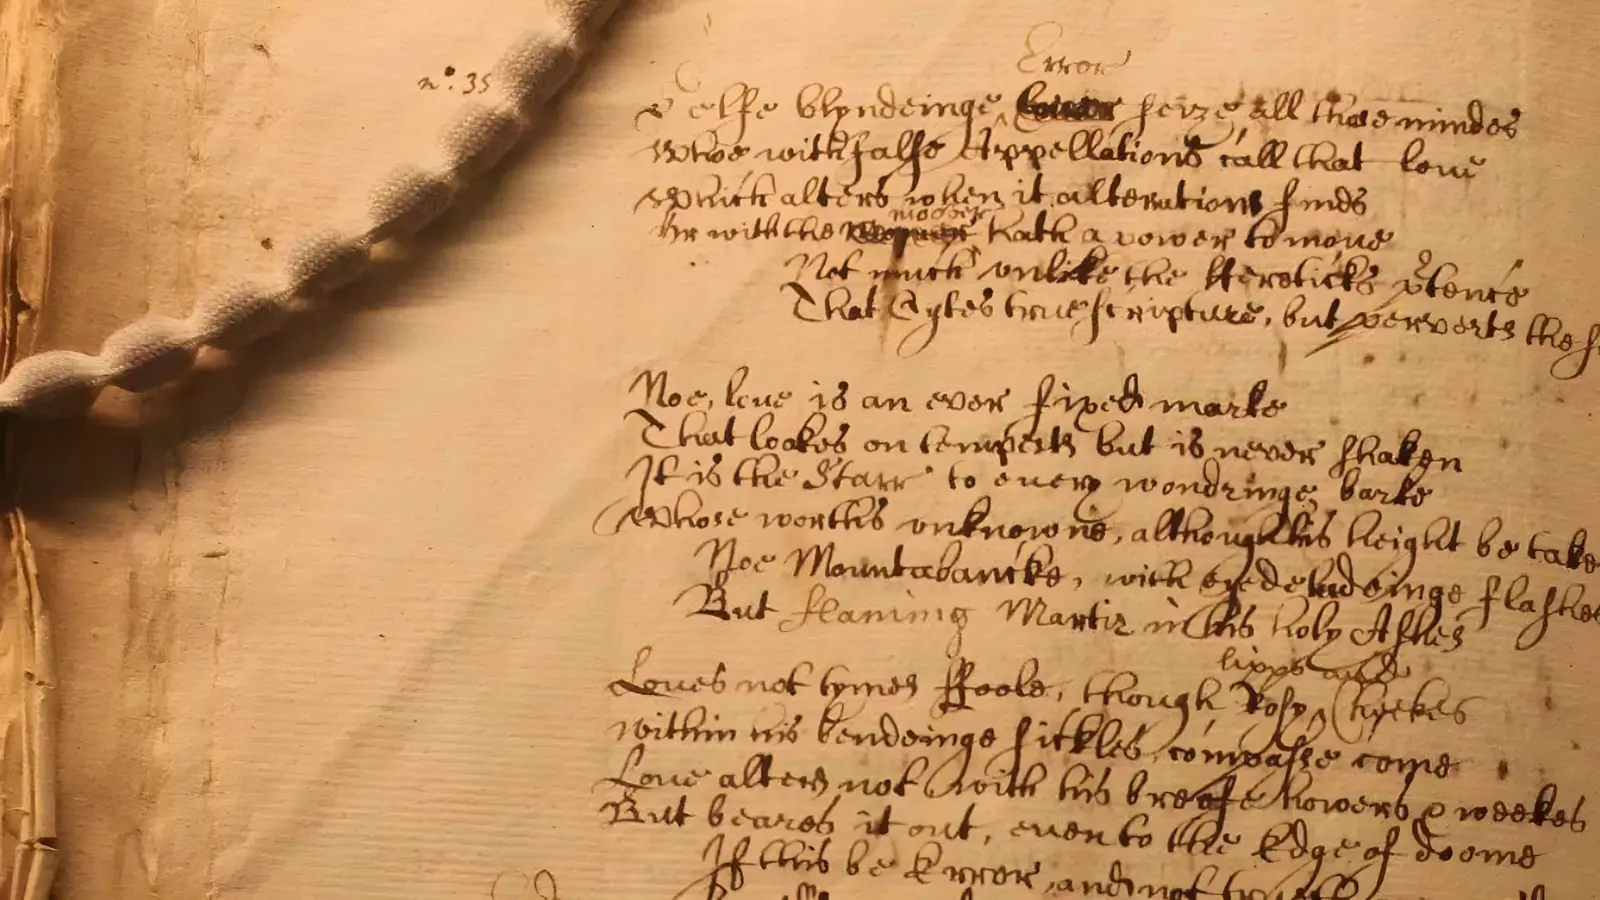 n°. 35
Error
Selfe blyndeinge seize all those mindes
Who with false Appellations call that loue
Which alters when it alterations finds
moover
Or with the hath a power to moue
Not much vnlike the Hereticks p̄tence
That Cytes true scripture, but perverts the
Noe, loue is an ever fixed marke
That lookes on tempests but is never shaken
It is the Starr to euery wondringe barke
Whose worth's vnknowne, although his height be take
Noe Mountabancke, with eyedeludeinge flashes
But flaming Martir in his holy Ashes
lipps and
Loues not tymes ffoole, though Rosy Cheekes
within his bendeinge sickles compasse come
Loue alters not with his breife howers & weekes
But beares it out, even to the Edge of doome
If this be Error, and not